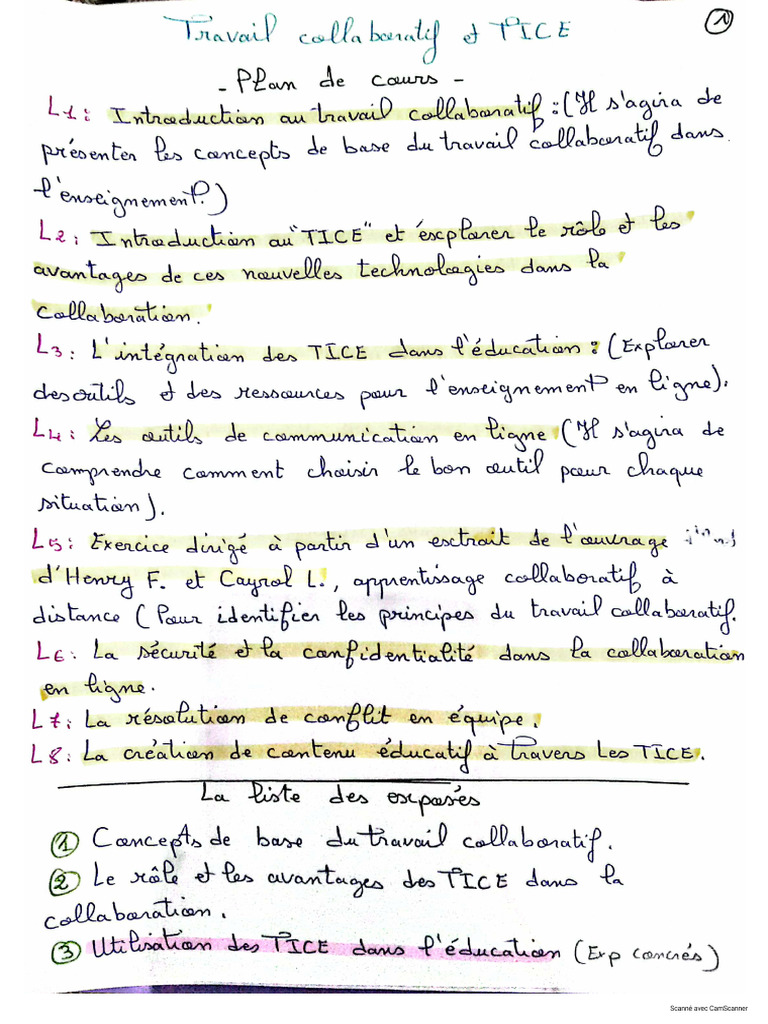 Travail collaboratif et TICE
1
- Plan de cours -
L1: Introduction au travail collaboratif : (Il s'agira de
présenter les concepts de base du travail collaboratif dans
l'enseignement.)
L2: Introduction au "TICE" et éxplorer le rôle et les
avantages de ces nouvelles technologies dans la
collaboration.
L3: L'intégration des TICE dans l'éducation : (Explorer
des outils et des ressources pour l'enseignement en ligne).
L4: Les outils de communication en ligne (Il s'agira de
comprendre comment choisir le bon outil pour chaque
situation).
L5: Exercice dirigé à partir d'un extrait de l'œuvrage
d'Henry F. et Cayrol L., apprentissage collaboratif à
distance (Pour identifier les principes du travail collaboratif.
L6: La sécurité et la confidentialité dans la collaboration
en ligne.
L7: La résolution de conflit en équipe.
L8: La création de contenu éducatif à travers les TICE.
La liste des exposés
1 Concepts de base du travail collaboratif.
2 Le rôle et les avantages des TICE dans la
collaboration.
3 Utilisation des TICE dans l'éducation (Exp concrés)
Scanné avec CamScanner